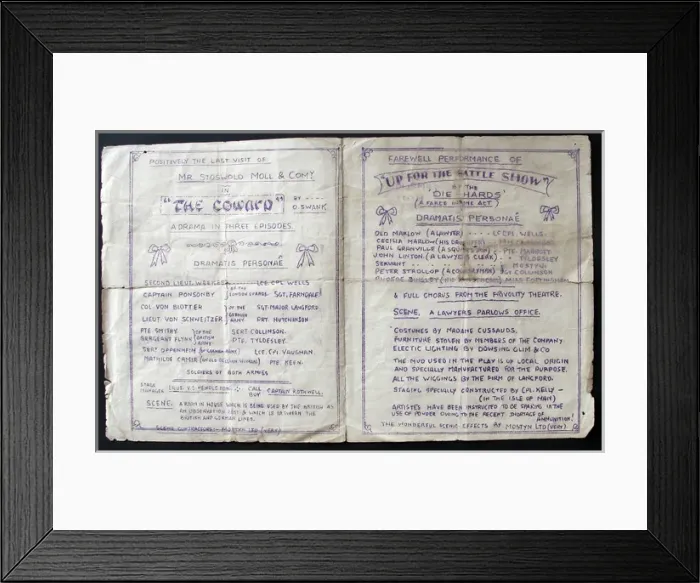 POSITIVELY THE LAST VISIT OF
MR. STOSWOLD MOLL & COMY
IN
"THE COWARD" BY
O. SWANK.
A DRAMA IN THREE EPISODES
DRAMATIS PERSONAÊ
SECOND LIEUT. LCE. CPL WELLS
CAPTAIN PONSONBY OF THE SGT. FARNDALE
COL. VON BLOTTER OF THE SGT-MAJOR LANGFORD.
LIEUT. VON SCHNEITZER GERMAN ARMY HUTCHINSON
PTE. OF THE SERT. COLLINSON.
SARGEANT FLYNN BRITISH ARMY PTE. TYLDESLEY.
SERT OPPENHEIM LCE. CPL VAUGHAN.
MATHILDE PTE. KEEN.
SOLDIERS OF BOTH ARMIES
STAGE MANAGER CALL BOY CAPTAIN
SCENE. A ROOM IN HOUSE WHICH IS BEING USED BY THE BRITISH AS
AN OBSERVATION POST & WHICH IS BETWEEN THE
BRITISH AND GERMAN LINES.
SCENIC CONTRACTORS - MOSTYN LTD (VERY)
FAREWELL PERFORMANCE OF
"UP FOR THE BATTLE SHOW"
BY THE
'DIE HARDS'
(A FARCE IN ONE ACT)
DRAMATIS PERSONAÊ
OLD MARLOW (A LAWYER) LCE CPL WELLS.
CECILIA MARLOW
PAUL GRANVILLE PTE.
JOHN LINTON. (A LAWYER'S CLERK) TYLDESLEY
SERVANT MOSTYN
PETER STROLLOP SGT COLLINSON
& FULL CHORUS FROM THE FRIVOLITY THEATRE.
SCENE. A LAWYERS PARLOWS OFFICE.
COSTUMES BY MADAME CUSSAUDS.
FURNITURE STOLEN BY MEMBERS OF THE COMPANY
ELECTIC LIGHTING BY DOWSING GLIM & CO
THE MUD USED IN THE PLAY IS OF LOCAL ORIGIN
AND SPECIALLY MANUFACTURED FOR THE PURPOSE.
ALL THE WIGGINGS BY THE FIRM OF LANGFORD.
STAGING SPECIALLY CONSTRUCTED BY CPL. KELLY -
(IN THE ISLE OF MAN)
ARTISTES HAVE BEEN INSTRUCTED TO BE SPARING IN THE
USE OF POWDER OWING TO THE RECENT SHORTAGE OF
AMMUNITION!
THE WONDERFUL SCENIC EFFECTS BY MOSTYN LTD (VERY)